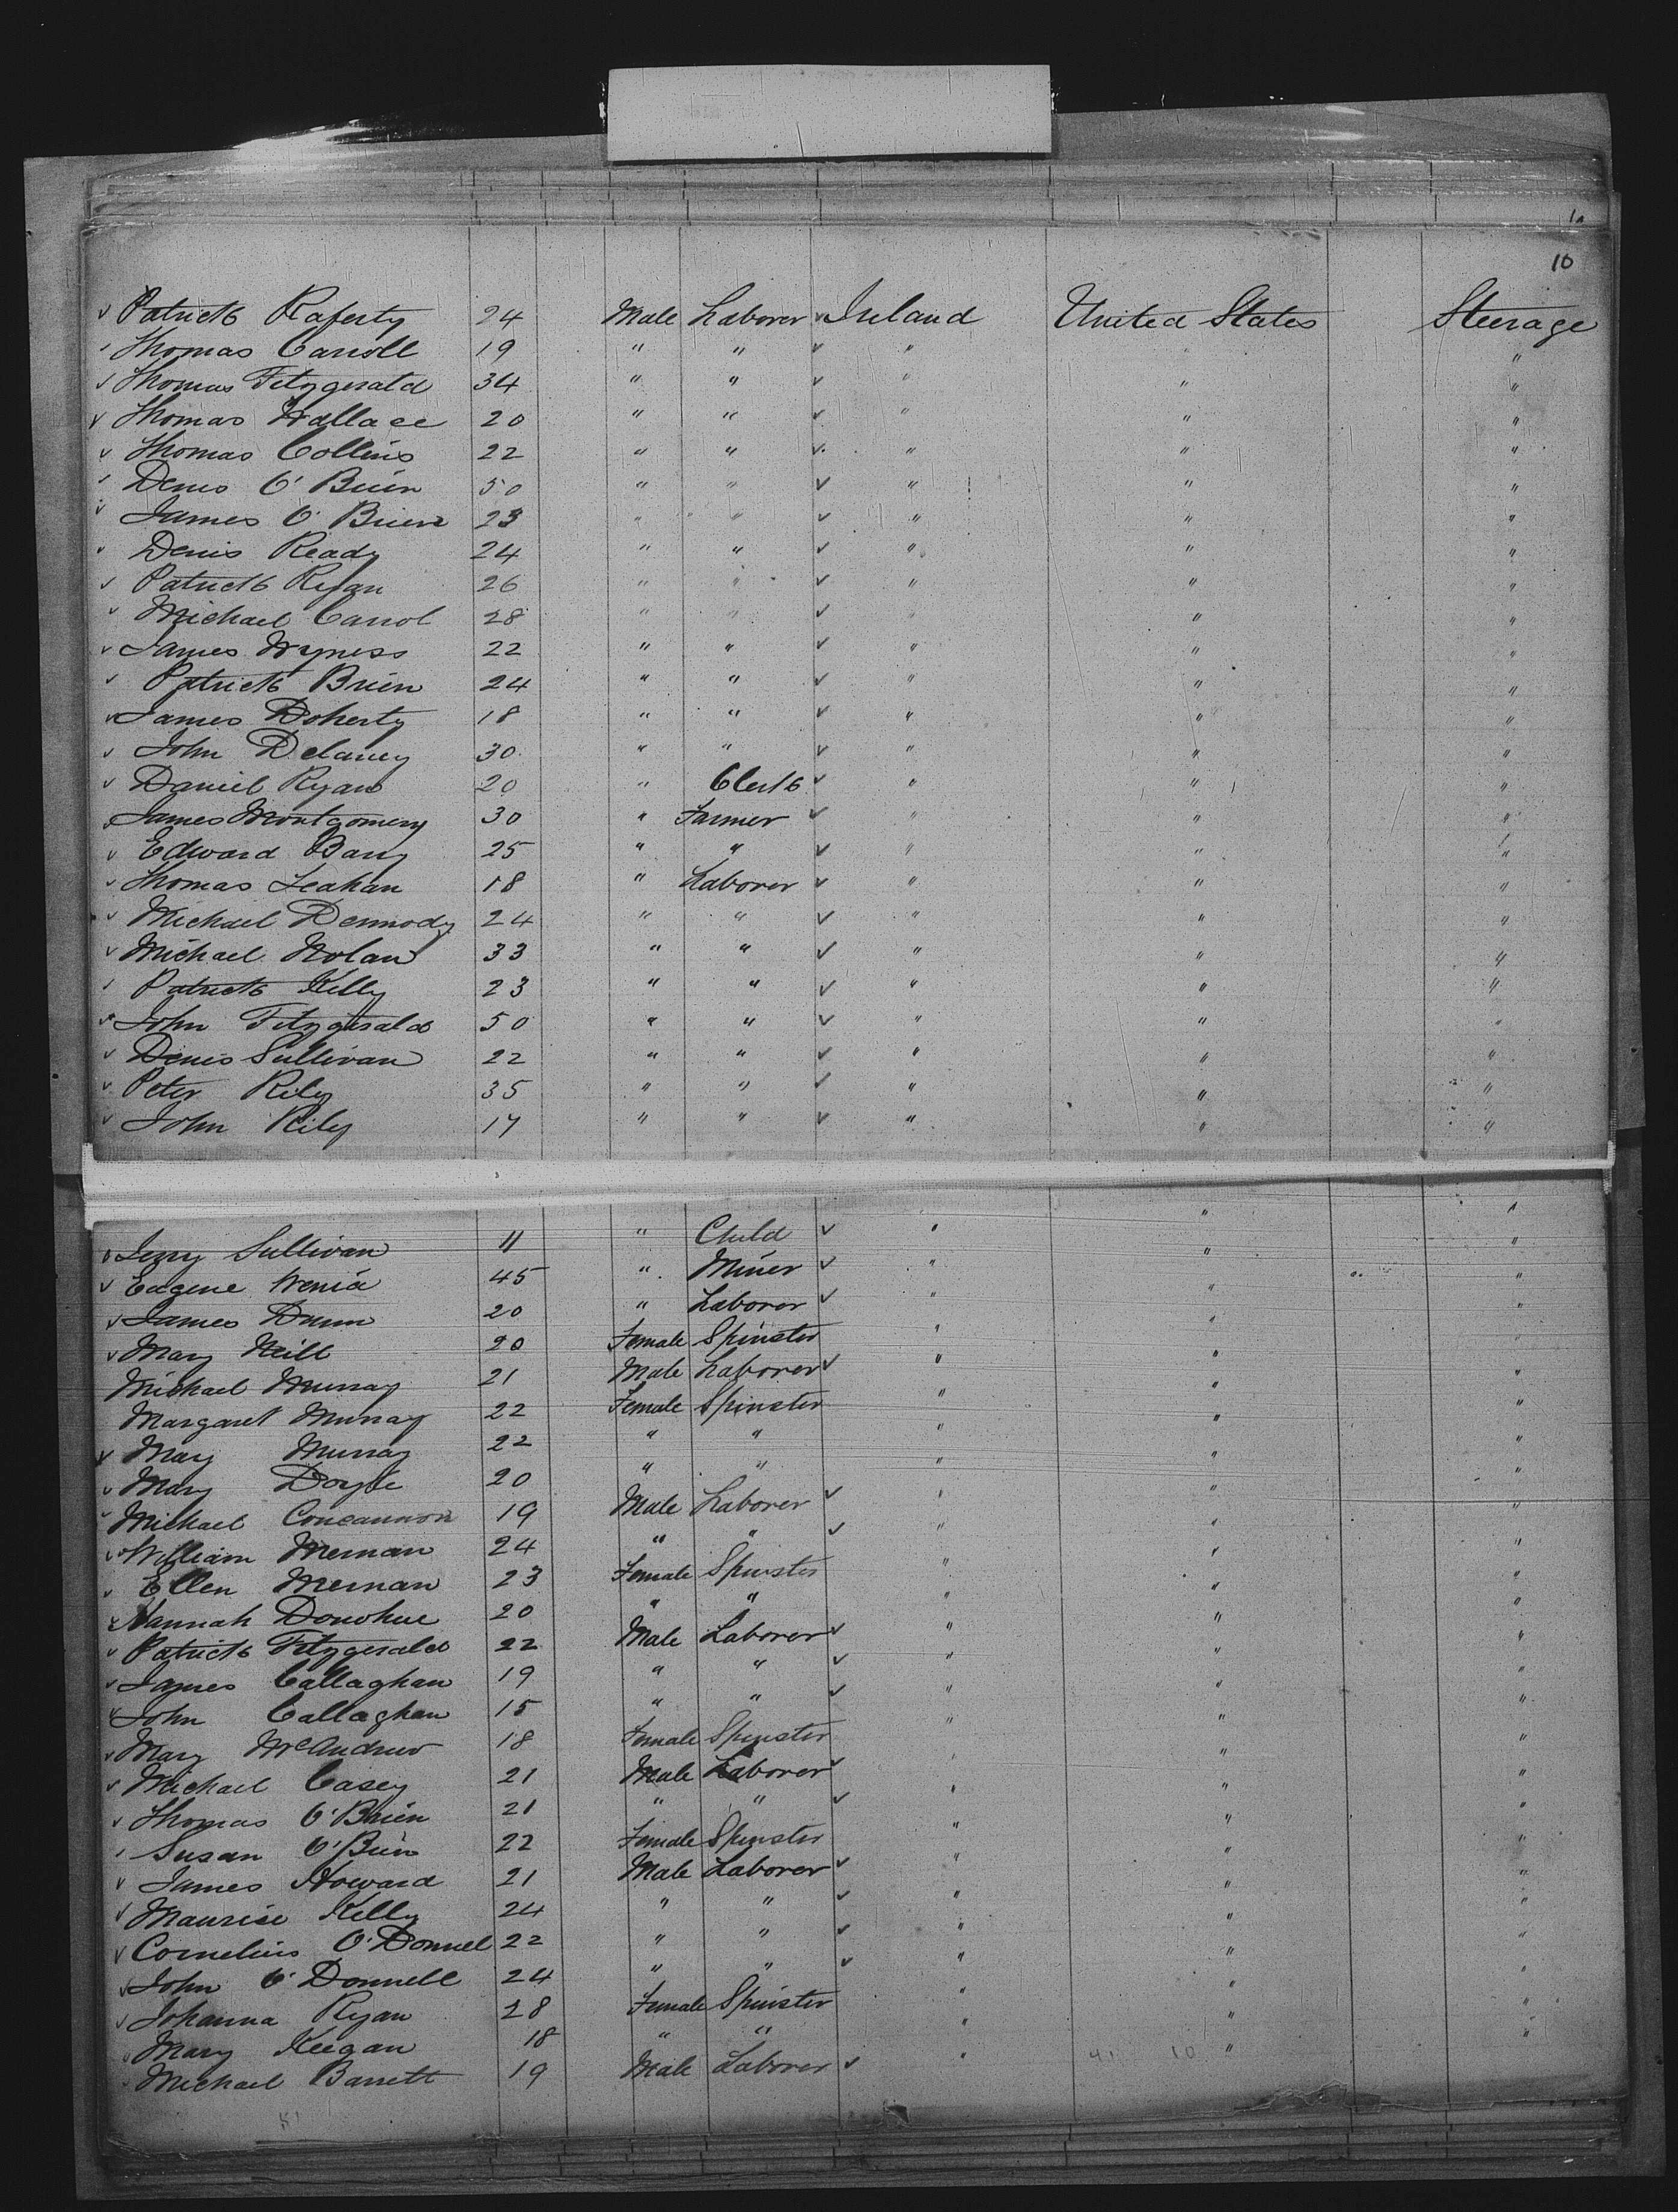 10
Patrick Raferty 24 Male Laborer Ireland United States Steerage
Thomas Carroll 19 " " " " "
Thomas Fitzgerald 34 " " " " "
Thomas Wallace 20 " " " " "
Thomas Collins 22 " " " " "
Denis O'Brien 50 " " " " "
James O'Brien 23 " " " " "
Denis Ready 24 " " " " "
Patrick Ryan 26 " " " " "
Michael Carrol 28 " " " " "
James Wyness 22 " " " " "
Patrick Brien 24 " " " " "
James Doherty 18 " " " " "
John Delaney 30 " " " " "
Daniel Ryan 20 " Clerk " " "
James Montgomery 30 " Farmer " " "
Edward Barry 25 " " " " "
Thomas Leahan 18 " Laborer " " "
Michael Dermody 24 " " " " "
Michael Nolan 33 " " " " "
Patrick Kelly 23 " " " " "
John Fitzgerald 50 " " " " "
Denis Sullivan 22 " " " " "
Peter Rily 35 " " " " "
John Rily 17 " " " " "
Jerry Sullivan 11 " Child " " "
Eugene 45 " Miner " " "
James Dunn 20 " Laborer " " "
Mary Neill 20 Female Spinster " " "
Michael Murray 21 Male Laborer " " "
Margaret Murray 22 Female Spinster " " "
Mary Murray 22 " " " " "
Mary Doyle 20 " " " " "
Michael Concannon 19 Male Laborer " " "
William Mernan 24 " " " " "
Ellen Mernan 23 Female Spinster " " "
Hannah Donohue 20 " " " " "
Patrick Fitzgerald 22 Male Laborer " " "
James Callaghan 19 " " " " "
John Callaghan 15 " " " " "
Mary McAndrew 18 Female Spinster " " "
Michael Casey 21 Male Laborer " " "
Thomas O'Brien 21 " " " " "
Susan O'Brien 22 Female Spinster " " "
James Howard 21 Male Laborer " " "
Maurise Kelly 24 " " " " "
Cornelius O'Donnel 22 " " " " "
John O'Donnell 24 " " " " "
Johanna Ryan 28 Female Spinster " " "
Mary Keegan 18 " " " " "
Michael Barrett 19 Male Laborer " " "